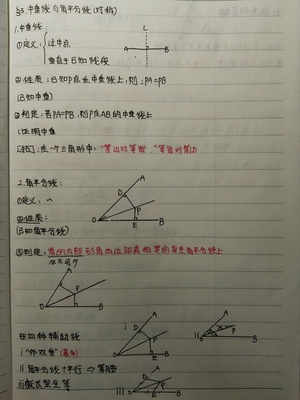 §3.中垂线与角平分线(对称)
1.中垂线:
①定义: 过中点
垂直于已知线段
L
A B
②性质: 已知P点在中垂线上,则:PA=PB
(已知中垂)
③判定: 若PA=PB,则P在AB的中垂线上
(证明中垂
在一个三角形中: "等边对等角","等角对等边
2.角平分线:
①定义: ~
②性质:
(已知角平分线)
A
D
P
O E B
③判定: 角的内部到角的两边距离相等的点在角平分线上
A
P
O B
④四种辅助线
i "作双垂"
ii 角平分线+平行 ⇒ 等腰
iii 截长型全等
i A
D
P
O E B
ii A
P
O B
iii A
D
P
O E B